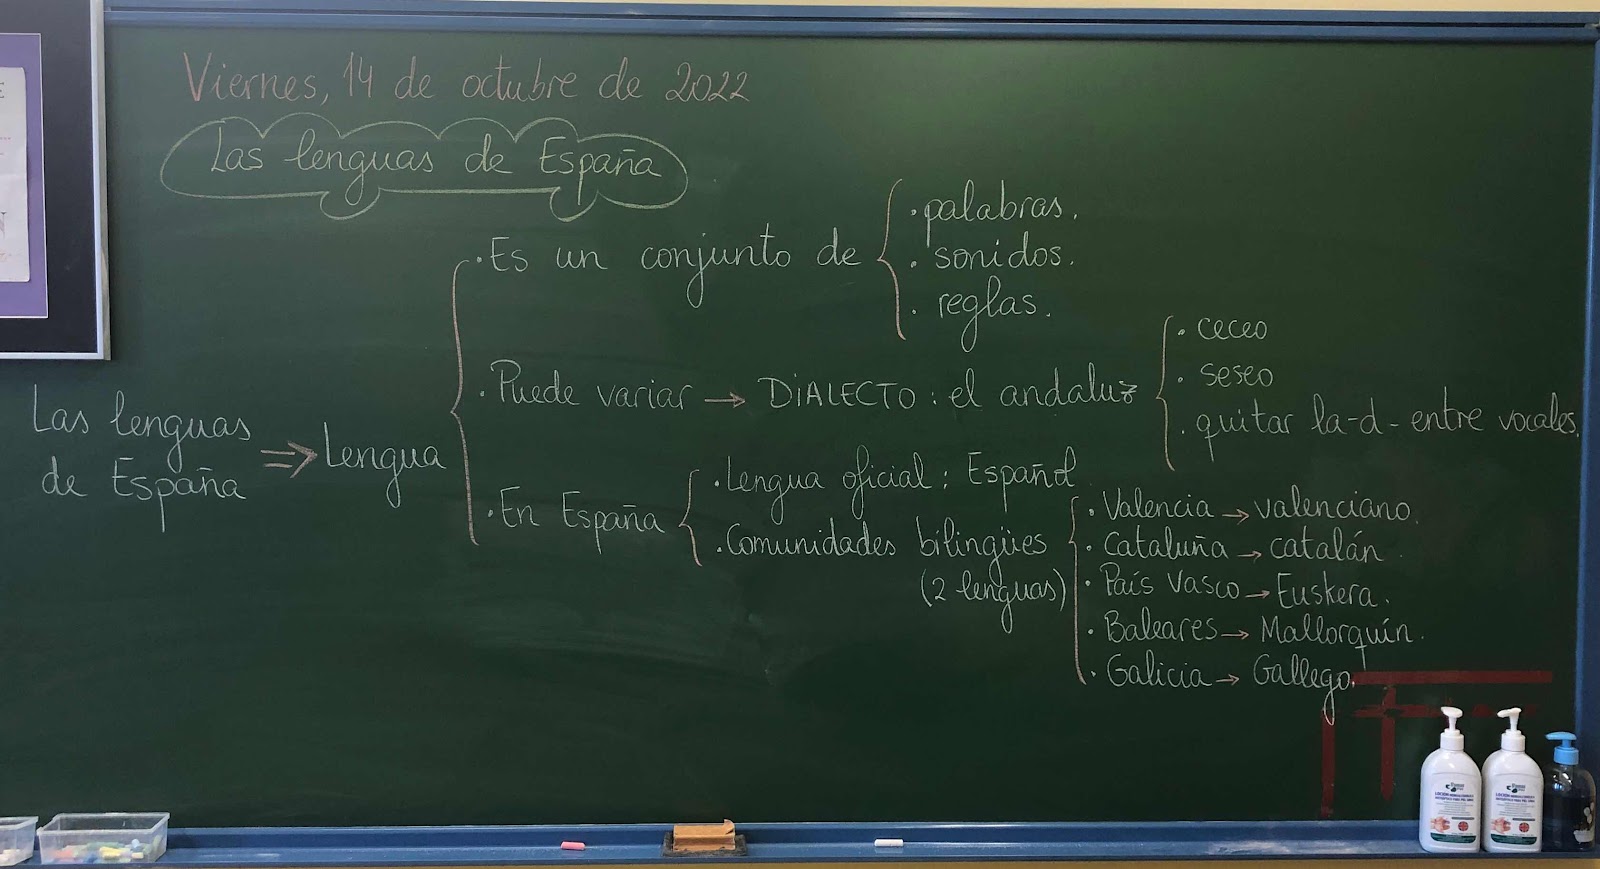 Viernes, 14 de octubre de 2022
Las lenguas de España
Las lenguas
de España
⇒ Lengua
· Es un conjunto de
· palabras.
· sonidos.
· reglas.
· Puede variar → DiALECTO : el andaluz
· ceceo
· seseo
· quitar la -d- entre vocales.
· En España
· Lengua oficial : Español
· Comunidades bilingües
(2 lenguas)
· Valencia → valenciano.
· Cataluña → catalán.
· País Vasco → Euskera.
· Baleares → Mallorquín.
· Galicia → Gallego.